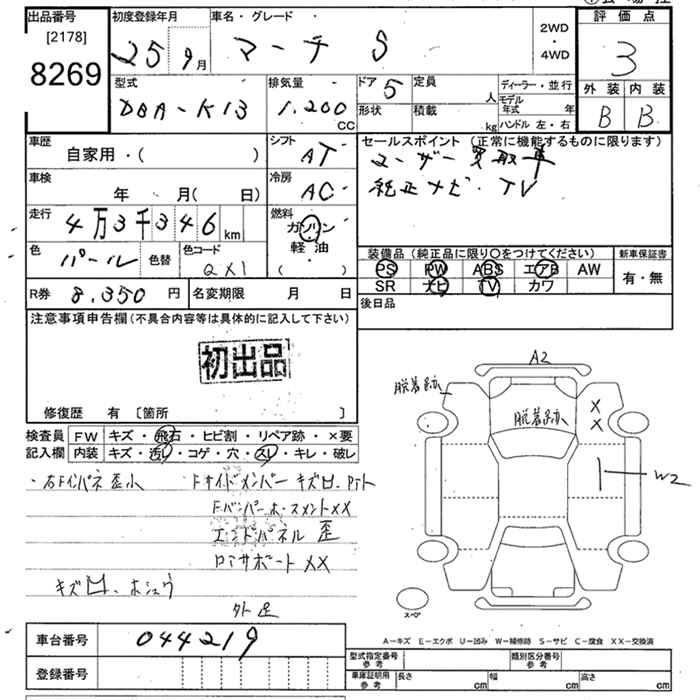 出品番号
[2178]
8269
初度登録年月
25 9月
車名・グレード
マーチ S
2WD
・
4WD
評価点
3
外装 内装
B B
型式
DBA-K13
排気量
1.200 CC
ドア 5
定員 人
形状
積載 kg
ディーラー・並行
モデル年式 年
ハンドル 左・右
車歴
自家用・( )
シフト
AT
セールスポイント(正常に機能するものに限ります)
ユーザー買取車
純正ナビ・TV
車検
年 月( 日)
冷房
AC
走行
4万3千346km
燃料
ガソリン
軽油
( )
色
パール
色替
色コード
QX1
装備品(純正品に限り○をつけてください)
PS PW ABS エアB AW
SR ナビ TV カワ
新車保証書
有・無
R券 8.350円
名変期限 月 日
後日品
注意事項申告欄(不具合内容等は具体的に記入して下さい)
初出品
修復歴 有 〔箇所 〕
検査員
記入欄
FW キズ・飛石・ヒビ割・リペア跡・×要
内装 キズ・汚レ・コゲ・穴・スレ・キレ・破レ
・右Fインパネ歪小
Fサイドメンバー キズ凹
FバンパーホースメントXX
エンドパネル 歪
ロアサポートXX
キズ凹
A2
脱着跡
脱着跡
X
X
W2
スペア
A-キズ E-エクボ U-凹み W-補修跡 S-サビ C-腐食 XX-交換済
車台番号
044219
登録番号
型式指定番号
参考
類別区分番号
参考
車庫証明用
参考
長さ cm
幅 cm
高さ cm